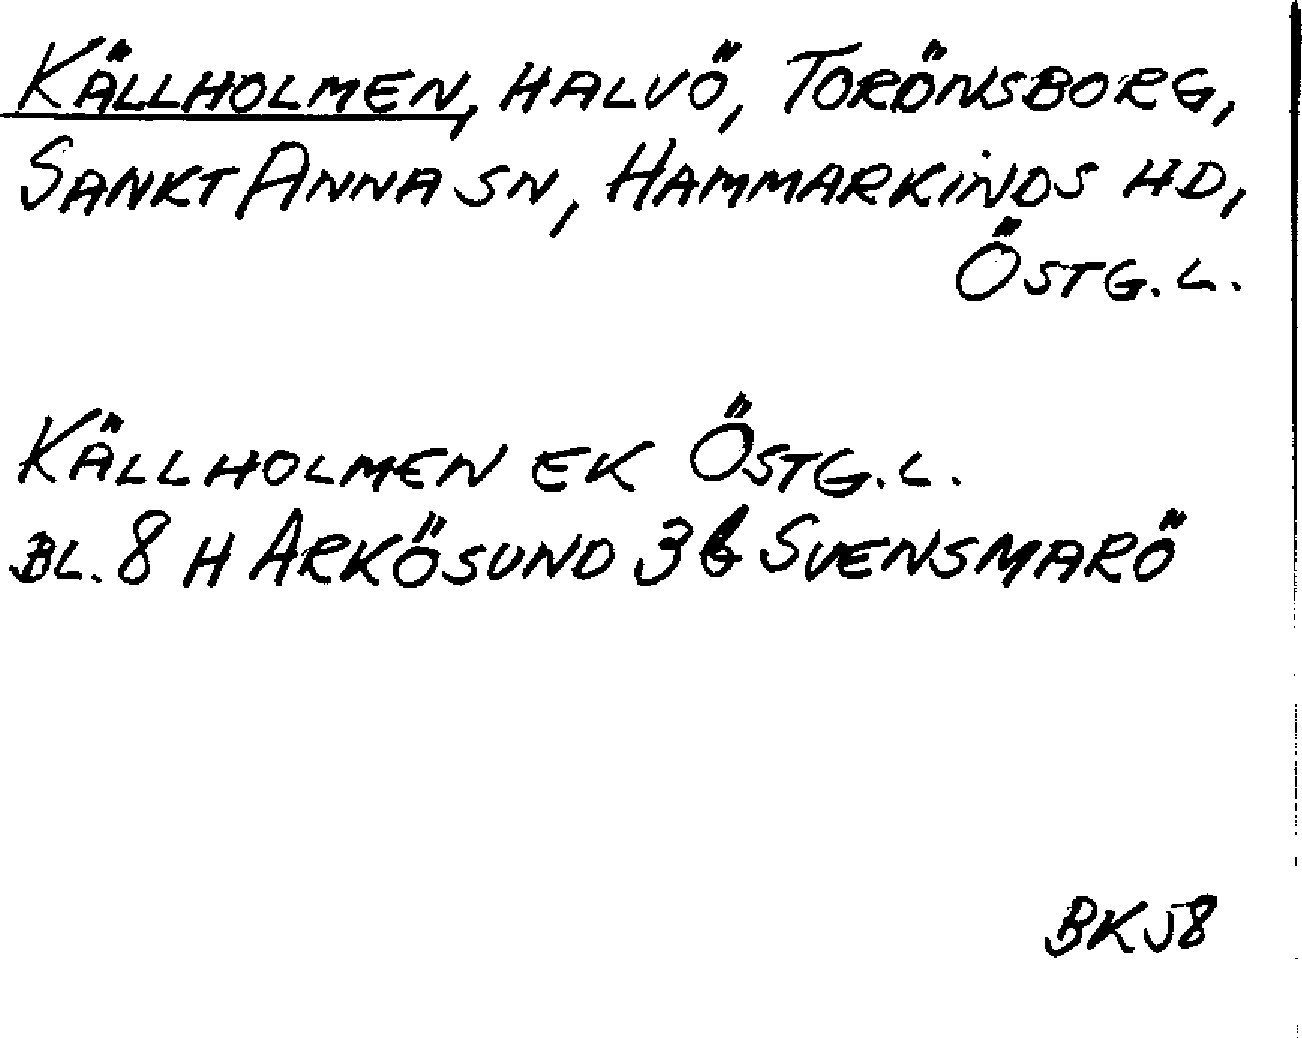 KÄLLHOLMEN, HALVÖ, TORÖNSBORG,
SANKT ANNA SN, HAMMARKINDS HD,
ÖSTG.L.
KÄLLHOLMEN EK ÖSTG.L.
BL. 8 H ARKÖSUND 3 b SVENSMARÖ
BK58